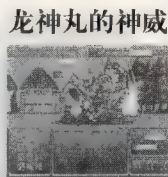 龙神丸的神威